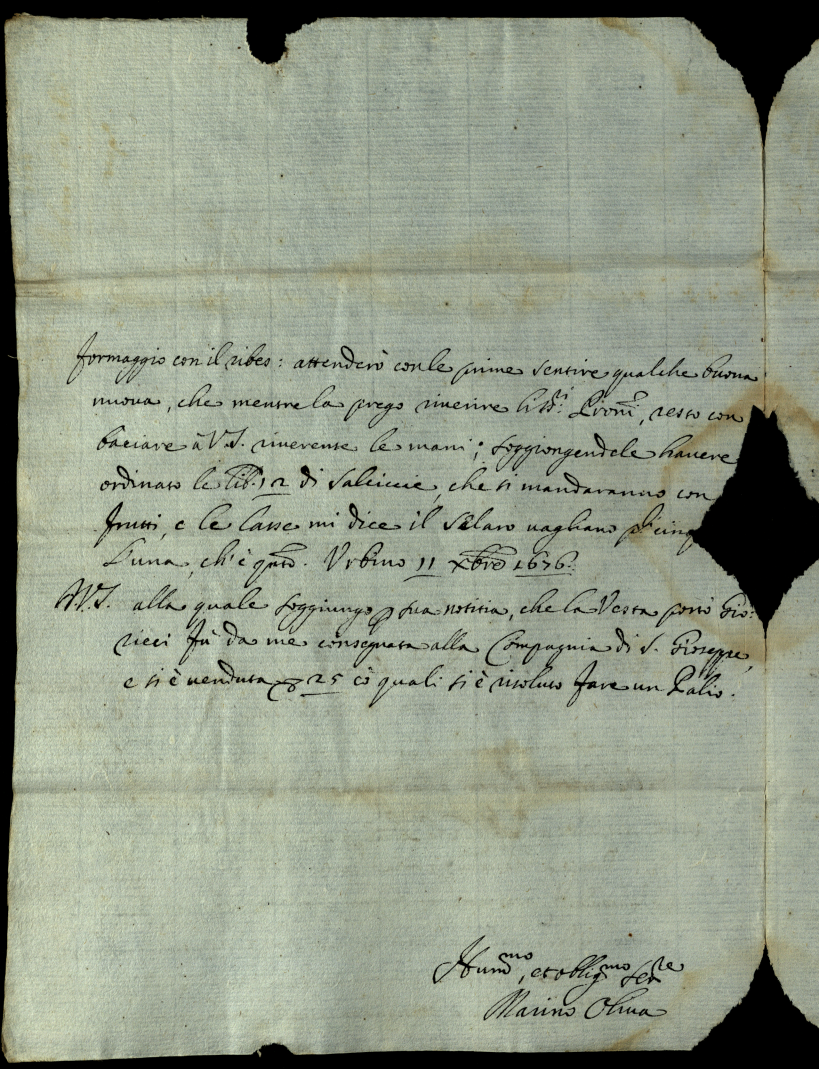 formaggio con il ribes: attenderò con le prime sentire qualche buona
nuova, che mentre la prego riverire li SS.ri Proni, resto con
baciare à V.S. riverente le mani; soggiongendole havere
ordinato le lib. 12 di Salciccie, che si mandaranno con
frutti, e le Casse mi dice il Sellaro vagliano cinq
l'una, ch'è q.to. Urbino 11 Xbre 1676.
V.S. alla quale soggiungo p sua notitia, che la Vesta portò Gio:
ricci fù da me consegnata alla Compagnia di S. Gioseppe,
e si è venduta 25 cò quali si è risoluto fare un Palio.
Hum.mo, et oblig.mo Ser.re
Marino Oliva